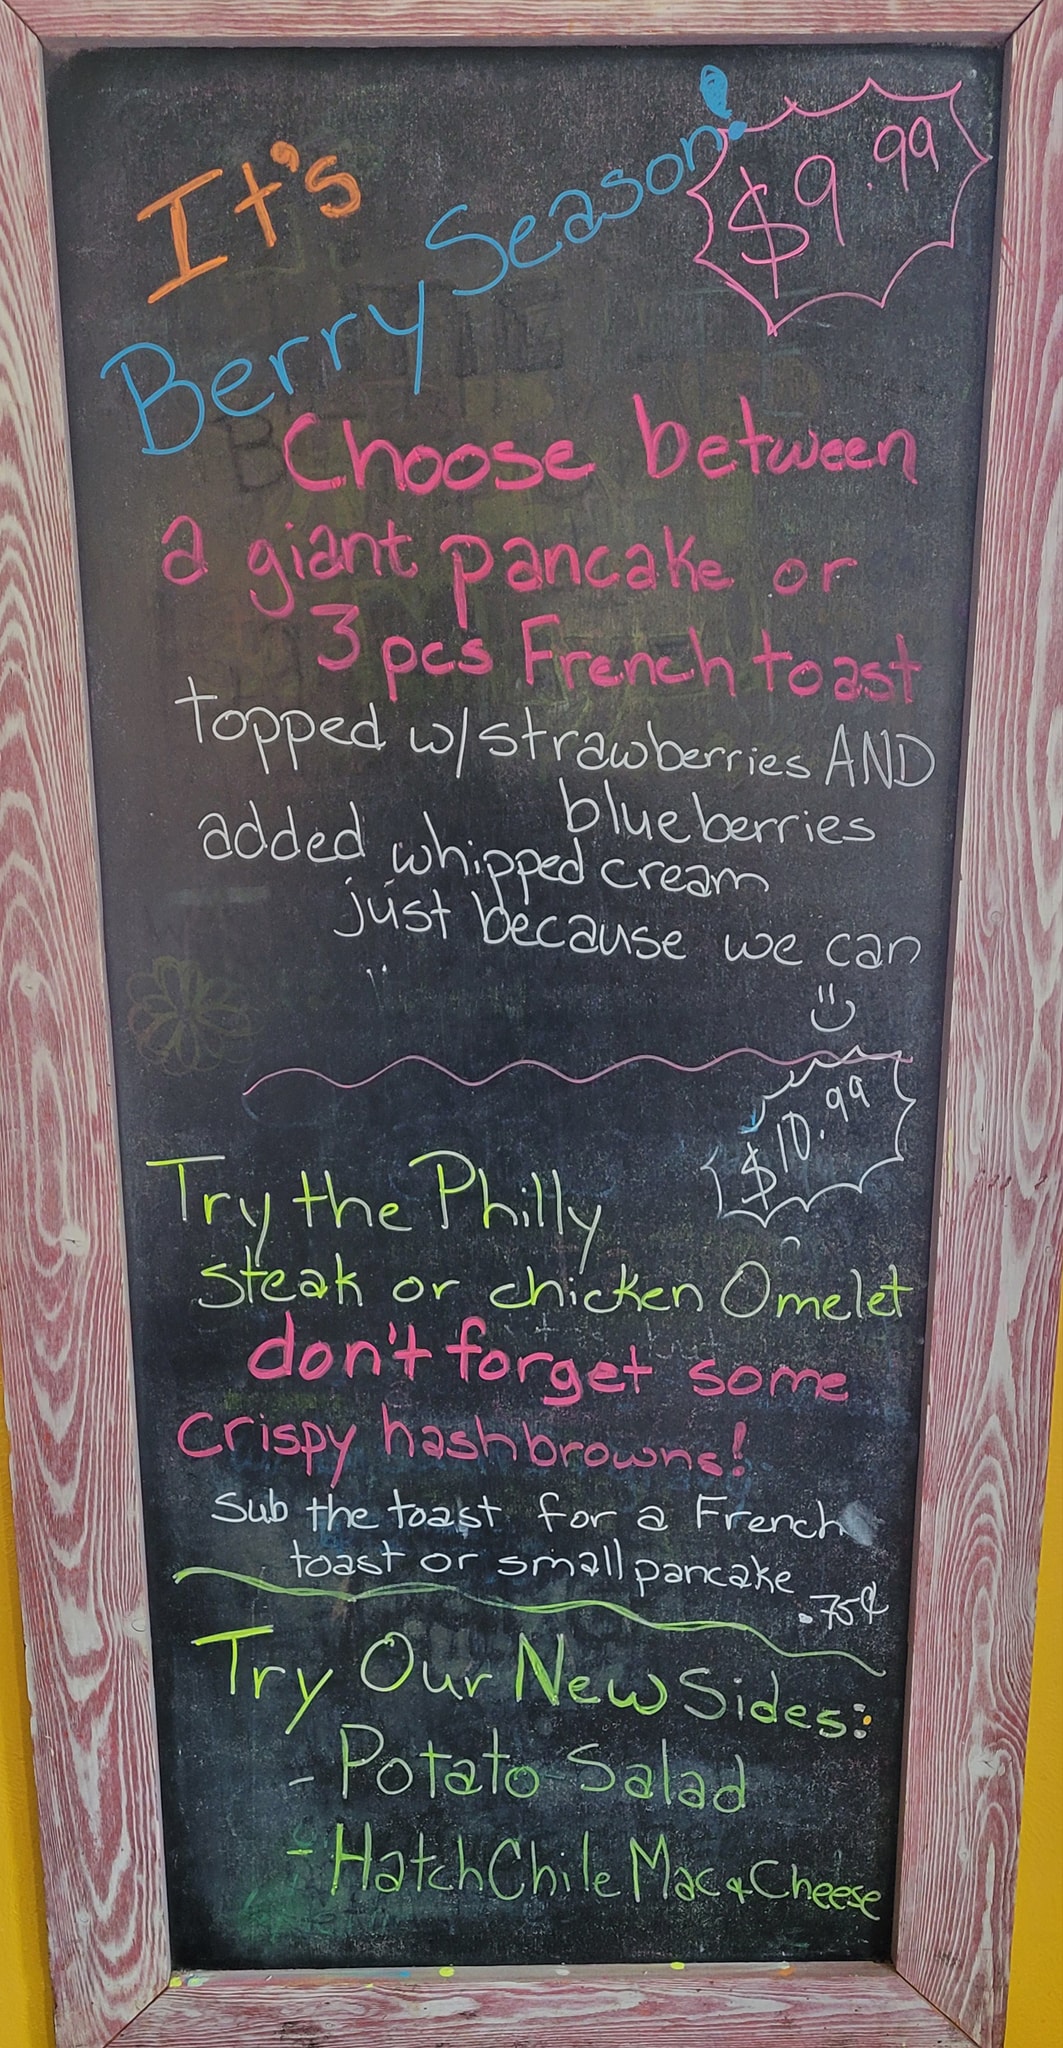 It's
Berry Season!
$9.99
Choose between
a giant pancake or
3 pcs French toast
topped w/strawberries AND
blueberries
added whipped cream
just because we can
$10.99
Try the Philly
steak or chicken Omelet
don't forget some
crispy hashbrowns!
Sub the toast for a French
toast or small pancake
.75¢
Try Our New Sides:
- Potato Salad
- Hatch Chile Mac & Cheese